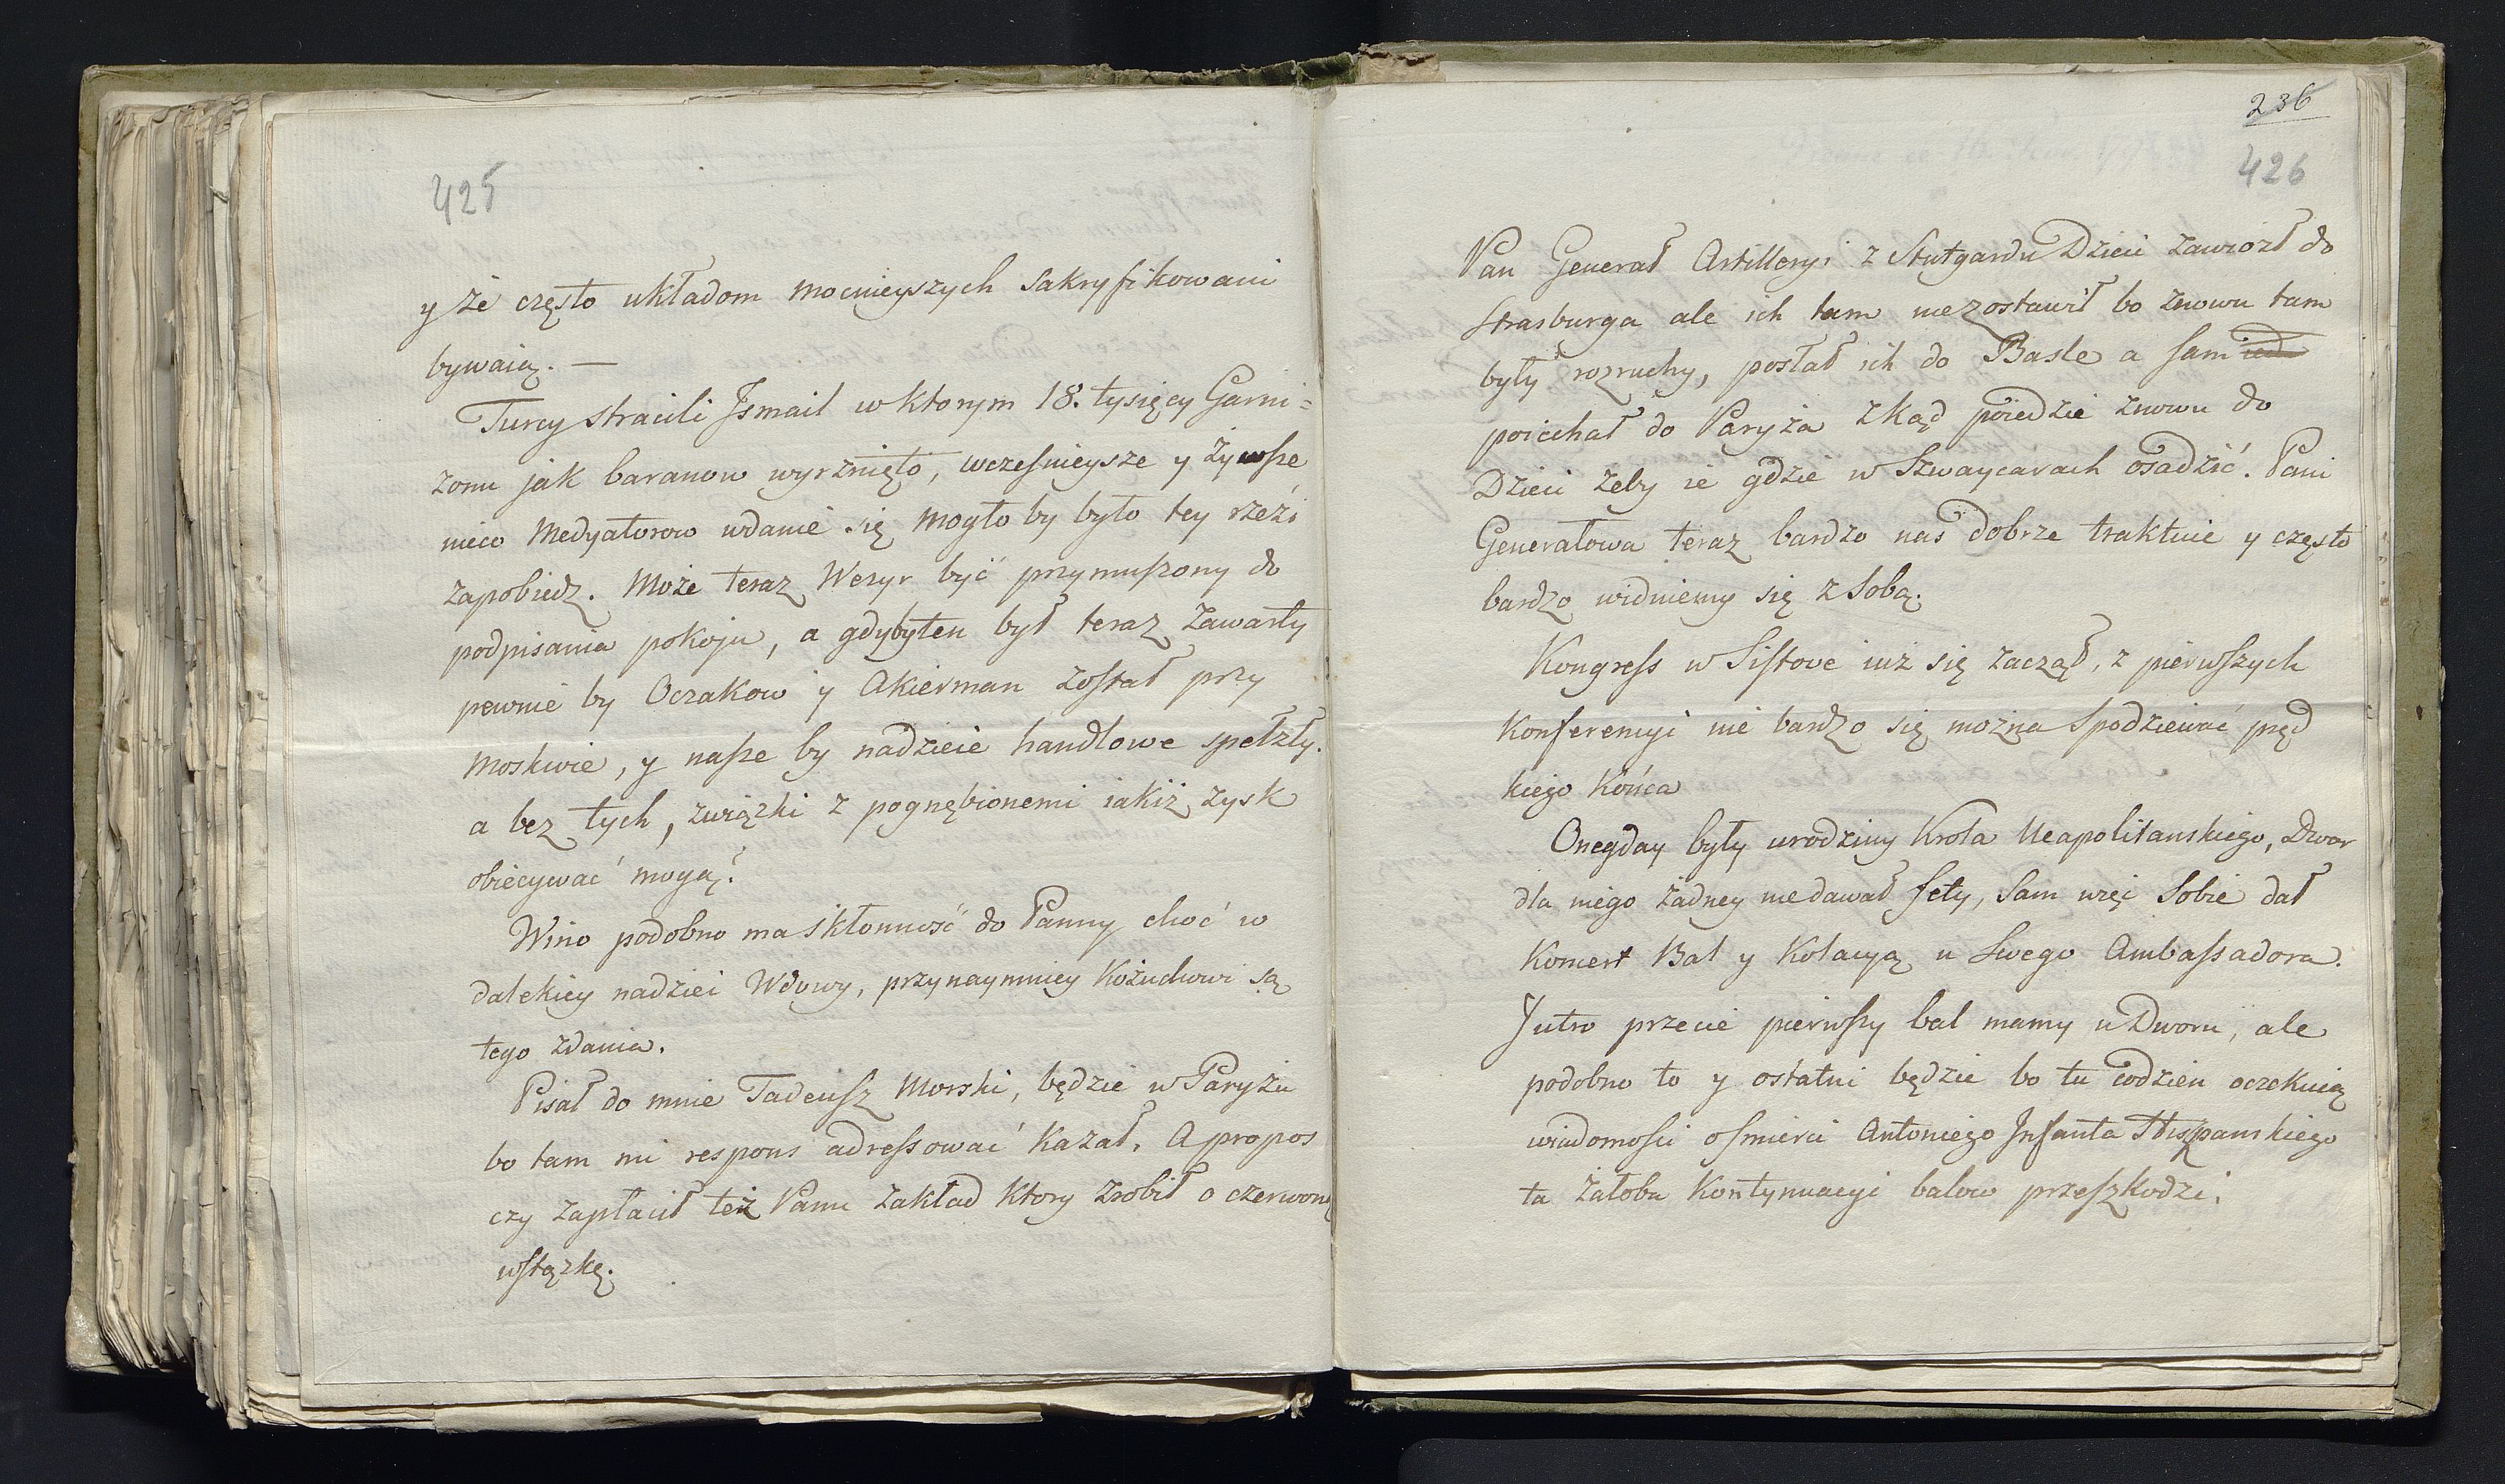 425
y że często układom mocnieyszych sakryfikowani
bywaią. —
Turcy stracili Jsmail w ktorym 18. tysięcy Garni=
zonu jak baranow wyrznięto, wczesnieysze y żywsze
nieco Medyatorow wdanie się mogło by było tey rzezi
zapobiedz. Może teraz Wezyr być przymuszony do
podpisania pokoju, a gdybyten był teraz zawarty
pewnie by Oczakow y Akierman został przy
Moskwie, y nasze by nadzieie handlowe spełzły.
a bez tych, związki z pognębionemi iakiż zysk
obiecywać mogą?
Wino podobno ma skłonność do Panny choć w
dalekiey nadziei Wdowy, przynaymniey Kożuchowi są
tego zdania.
Pisał do mnie Tadeusz Morski, będzie w Paryżu
bo tam mi respons adressować kazał. Apropos
czy zapłacił też Panu zakład ktory zrobił o czerwoną
wstążkę.
236
426
Pan Generał Artilleryi z Stutgardu Dzieci zawiozł do
Strasburga ale ich tam niezostawił bo znowu tam
były rozruchy, posłał ich do Basle a sam
poiechał do Paryża zkąd poiedzie znowu do
Dzieci żeby ie gdzie w Szwaycarach osadzić. Pani
Generałowa teraz bardzo nas dobrze traktuie y często
bardzo widuiemy się z sobą.
Kongress w Sistove iuż się zaczął, z pierwszych
Konferencyi nie bardzo się można spodziewać pręd
kiego końca
Onegday były urodziny Krola Neapolitanskiego, Dwor
dla niego żadney niedawał fety, sam więc sobie dał
Koncert Bal y Kolacyą u swego Ambassadora.
Jutro przecie pierwszy bal mamy u Dworu, ale
podobno to y ostatni będzie bo tu codzien oczekuią
wiadomosci osmierci Antoniego Jnfanta Hiszpanskiego
ta żałoba kontynuacyi balow przeszkodzi.